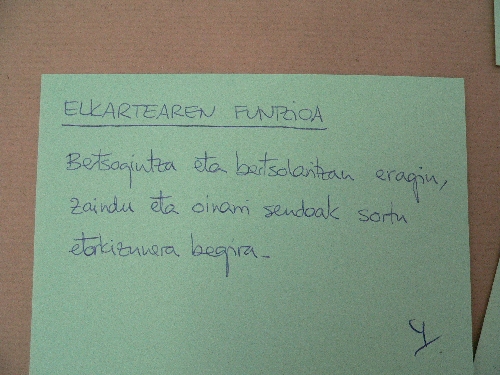 ELKARTEAREN FUNTZIOA
Bertsogintza eta bertsolaritzan eragin,
zaindu eta oinarri sendoak sortu
etorkizunera begira.
Y